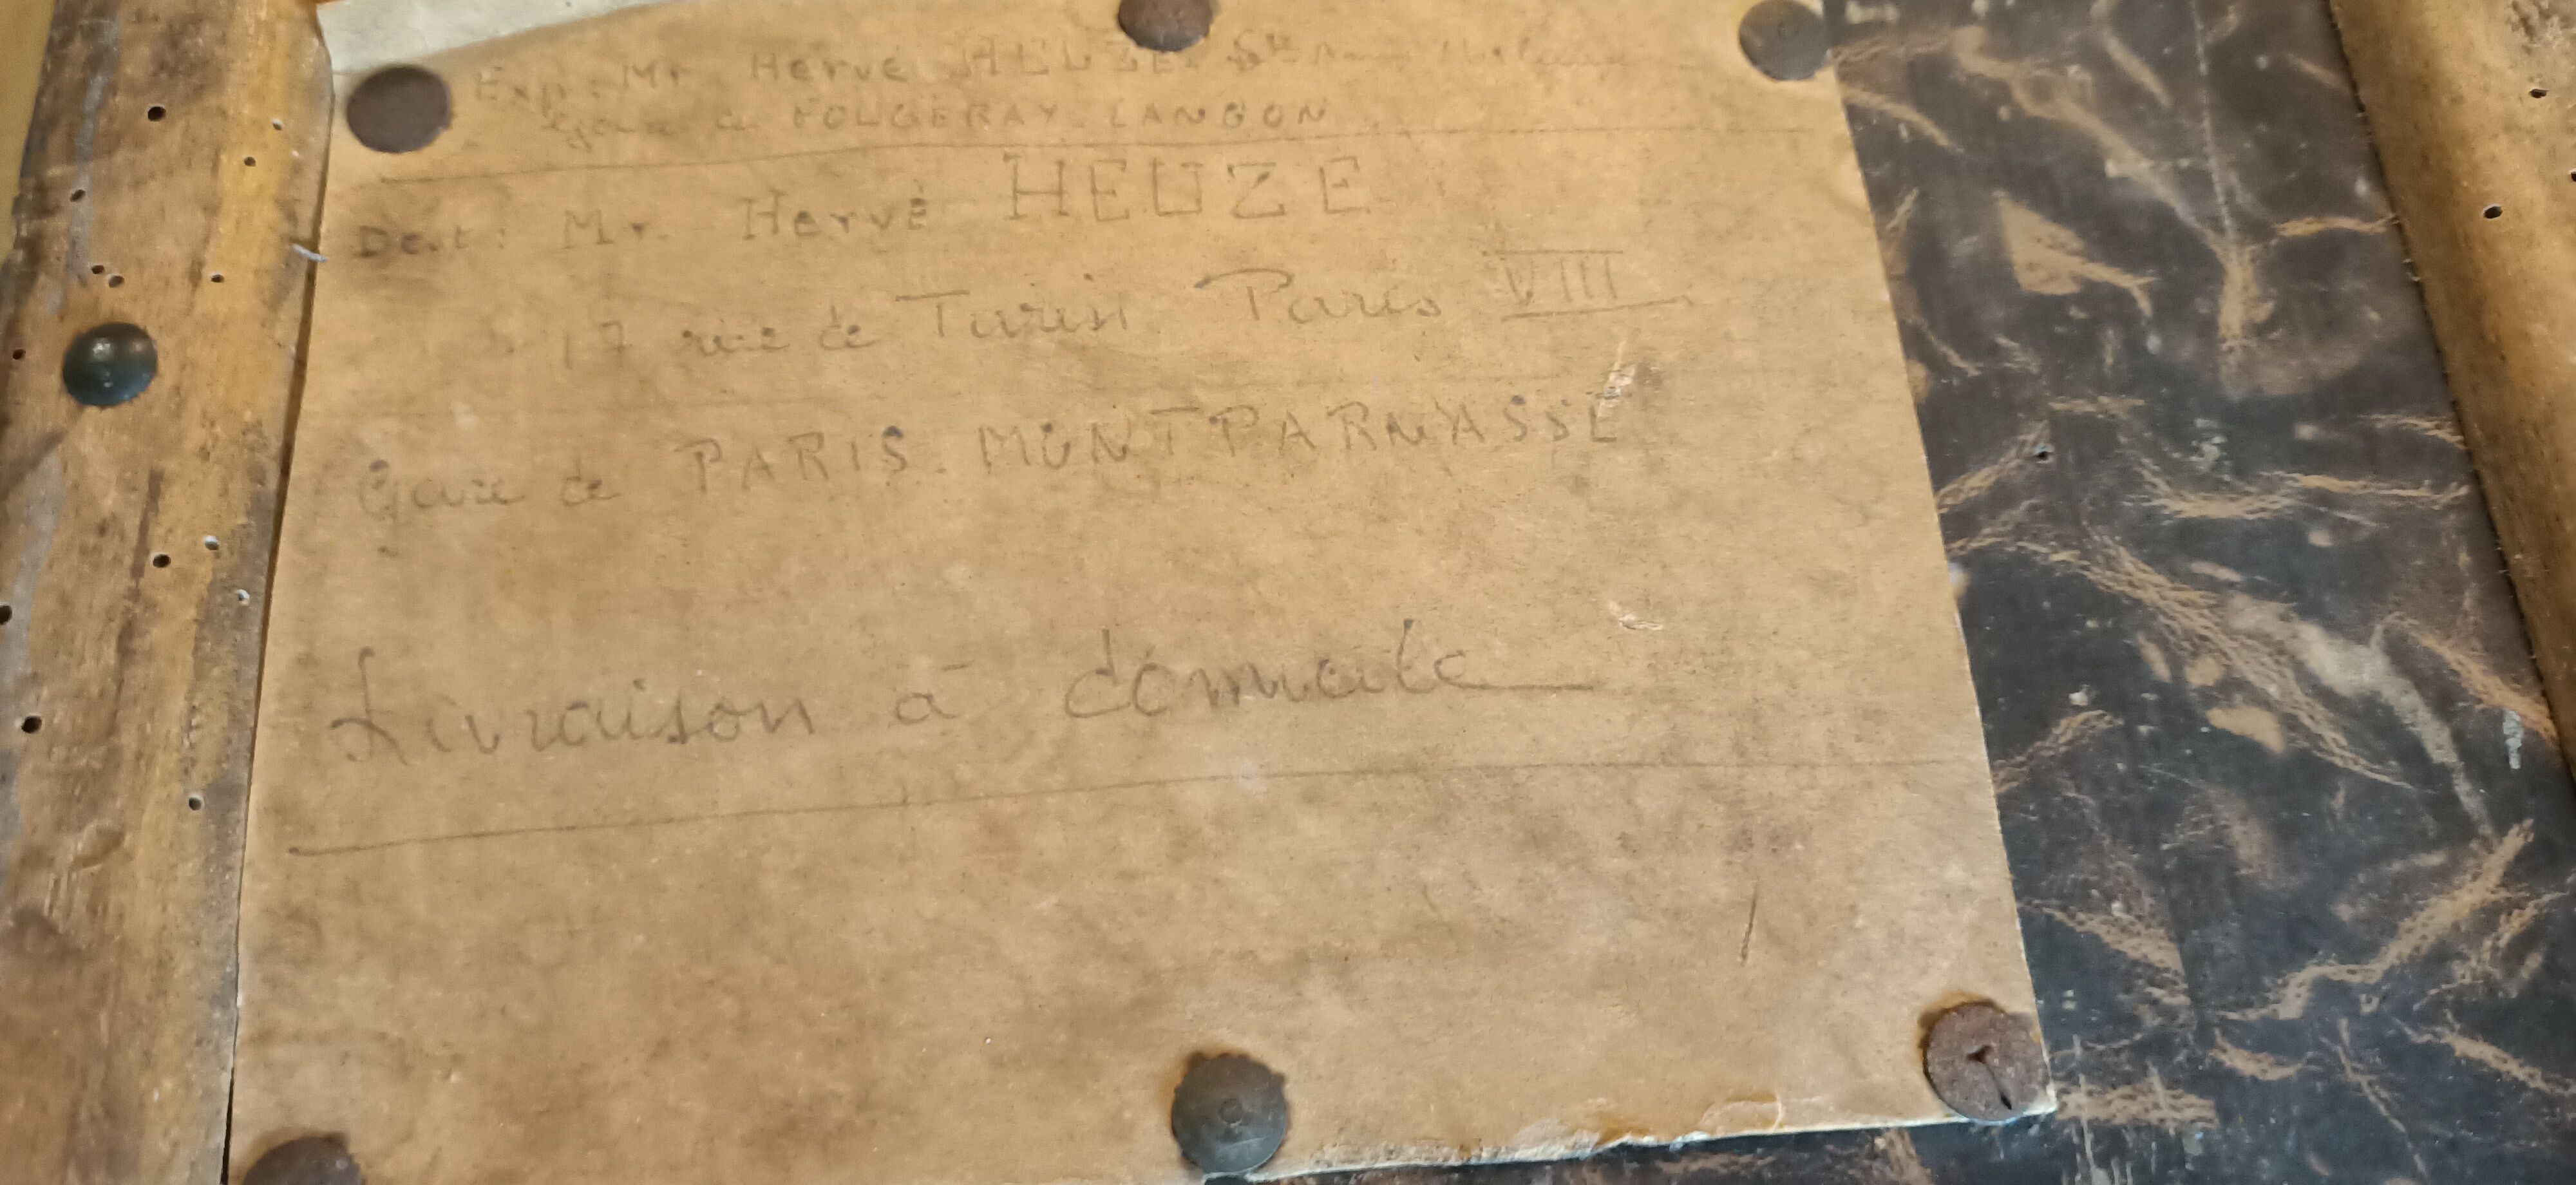 Exp: Mr Hervé HEUZE Ste Anne
gare de FOUGERAY-LANGON
Dest: Mr. Hervé HEUZE
17 rue de Turin Paris VIII
Gare de PARIS-MONTPARNASSE
Livraison à domicile